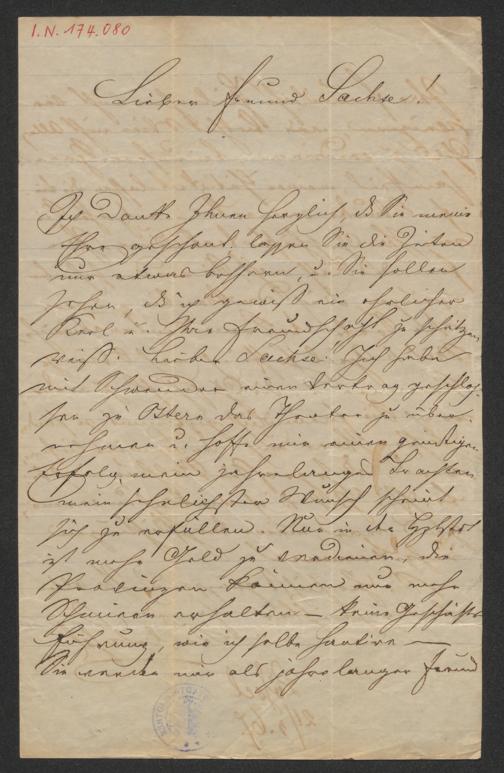 I.N. 174.080
Lieber Freund Sachse!
Ich danke Ihnen herzlich, daß Sie meine
Ehre geschont, lassen Sie die Zeiten
nur etwas bessern, u. Sie sollen
sehen, daß ich gewiß ein ehrlicher
Kerl u. Ihre Freundschaft zu schätzen
weiß. Lieber Sachse. Ich habe
mit Schwender einen Vertrag geschlos-
sen zu Ostern das Theater zu über-
nehmen u. hoffe mir einen günstigen
Erfolg, mein jahrelanges Trachten
mein sehnlichster Wunsch scheint
sich zu erfüllen. Nur in der
ist mehr Geld zu verdienen, die
Provinzen können nur mehr
erhalten — keine Geschäfts-
führung, wie ich selbe
Sie werden mir als jahrelanger Freund